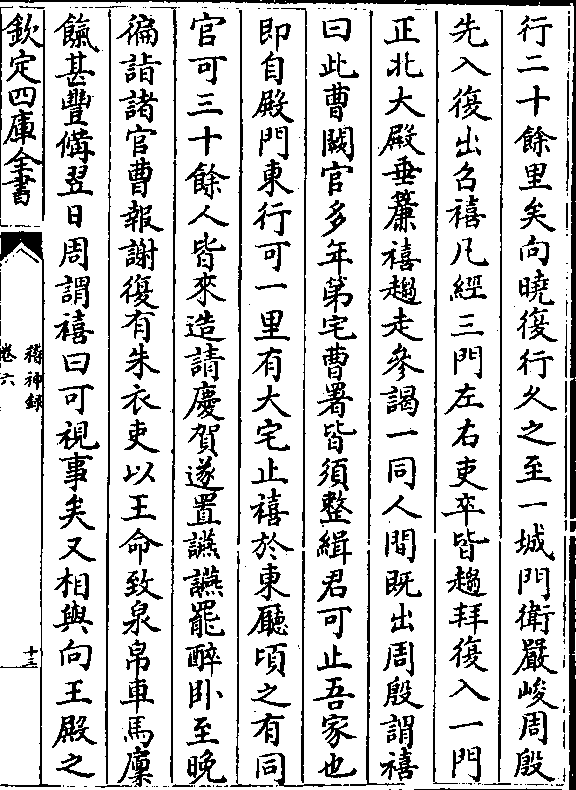 行二十餘里矣向曉復行久之至一城門衛嚴峻周殷
先入復出召禧凡經三門左右吏卒皆趨拜復入一門
正北大殿垂簾禧趨走參謁一同人間既出周殷謂禧
曰此曹闕官多年第宅曹署皆須整緝君可止吾家也
即自殿門東行可一里有大宅止禧於東廳頃之有同
官可三十餘人皆來造請慶賀遂置讌讌罷醉卧至晚
徧詣諸官曹報謝復有朱衣吏以王命致泉帛車馬廩
餼甚豐備翌日周謂禧曰可視事矣又相與向王殿之
欽定四庫全書
稽神録
卷六
十三